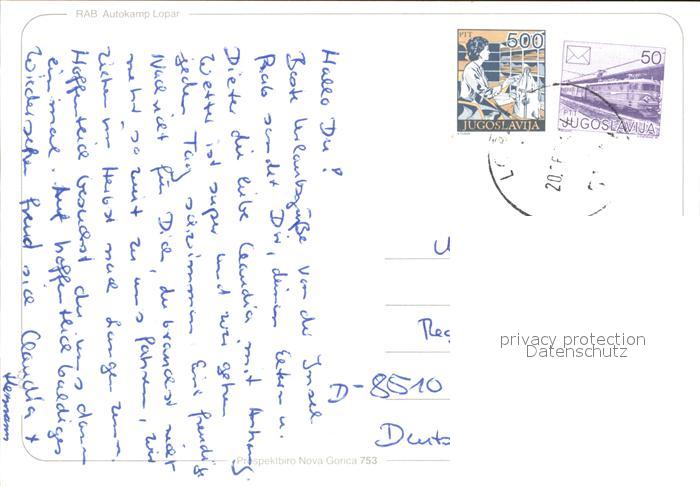 RAB Autokamp Lopar
Hallo Du!
Beste Urlaubsgrüße von der Insel
Rab sendet Dir, deinen Eltern u.
Dieter die liebe Claudia mit Anhang.
Wetter ist super und wir gehen
jeden Tag schwimmen. Eine freudige
Nachricht für Dich, du brauchst nicht
mehr so weit zu uns fahren, wir
ziehen im Herbst nach Langenzenn.
Hoffentlich besuchst du uns dann
einmal. Auf hoffentlich baldiges
Wiedersehen freut sich Claudia +
Hermann
PTT 500
JUGOSLAVIJA
50
PTT
JUGOSLAVIJA
20.
D-8510
Deuts
privacy protection
Datenschutz
Prospektbiro Nova Gorica 753